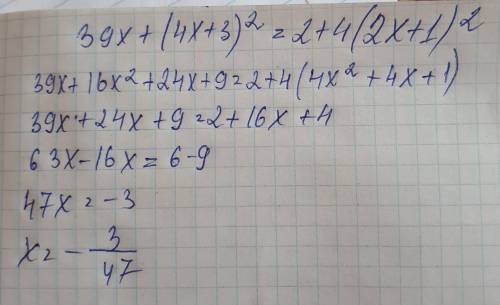 39x + (4x+3)² = 2+4(2x+1)²
39x+16x²+24x+9=2+4(4x²+4x+1)
39x+24x+9=2+16x+4
63x-16x=6-9
47x=-3
x=-3/47